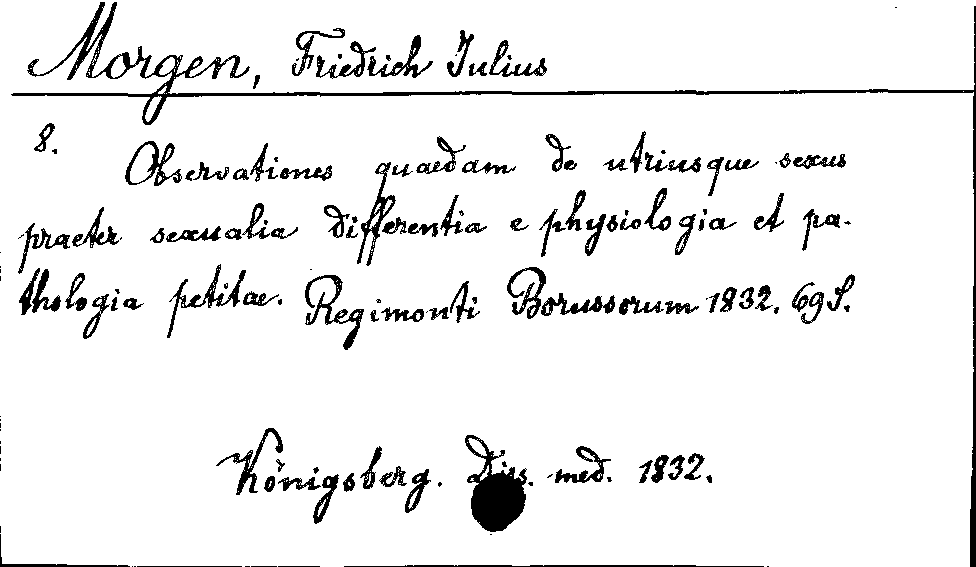 Morgen, Friedrich Julius
8.
Observationes quaedam de utriusque sexus
praeter sexualia differentia e physiologia et pa-
thologia petitae. Regimonti Borussorum 1832. 69 S.
Königsberg. Diss. med. 1832.